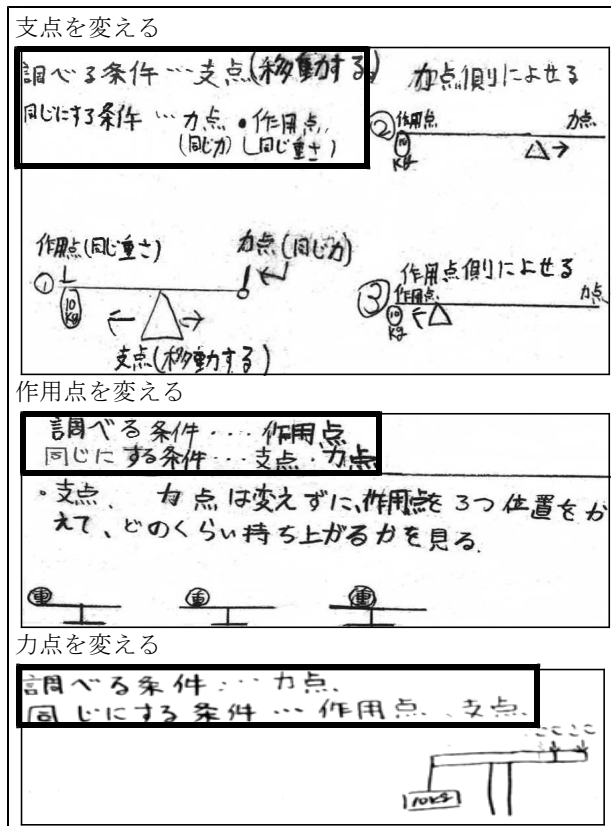 支点を変える
調べる条件…支点(移動する)
同じにする条件…力点・作用点
(同じ力)(同じ重さ)
力点側によせる
② 作用点 力点
10
kg
作用点(同じ重さ) 力点(同じ力)
①
10
kg
支点(移動する)
作用点側によせる
③ 作用点 力点
10
kg
作用点を変える
調べる条件‥‥作用点
同じにする条件‥‥支点・力点
・支点、力点は変えずに、作用点を3つ位置をか
えて、どのくらい持ち上がるかを見る。
重 重 重
力点を変える
調べる条件…力点、
同じにする条件…作用点、支点、
ここここ
10kg